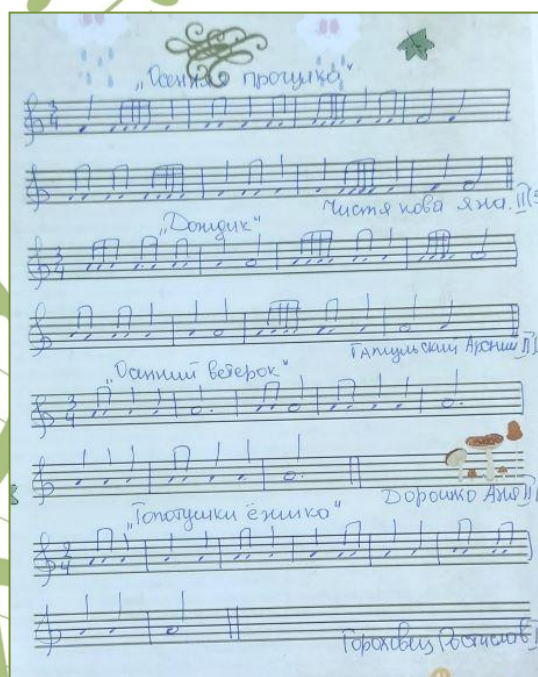 „Осенняя прогулка"
3
4
Чистякова Яна. II(5
„Дождик"
3
4
Гапцульский Арсений II
„Осенний ветерок"
3
4
Дорошко Аня II
„Топотушки ёжика"
2
4
Гороховец Ростислав I